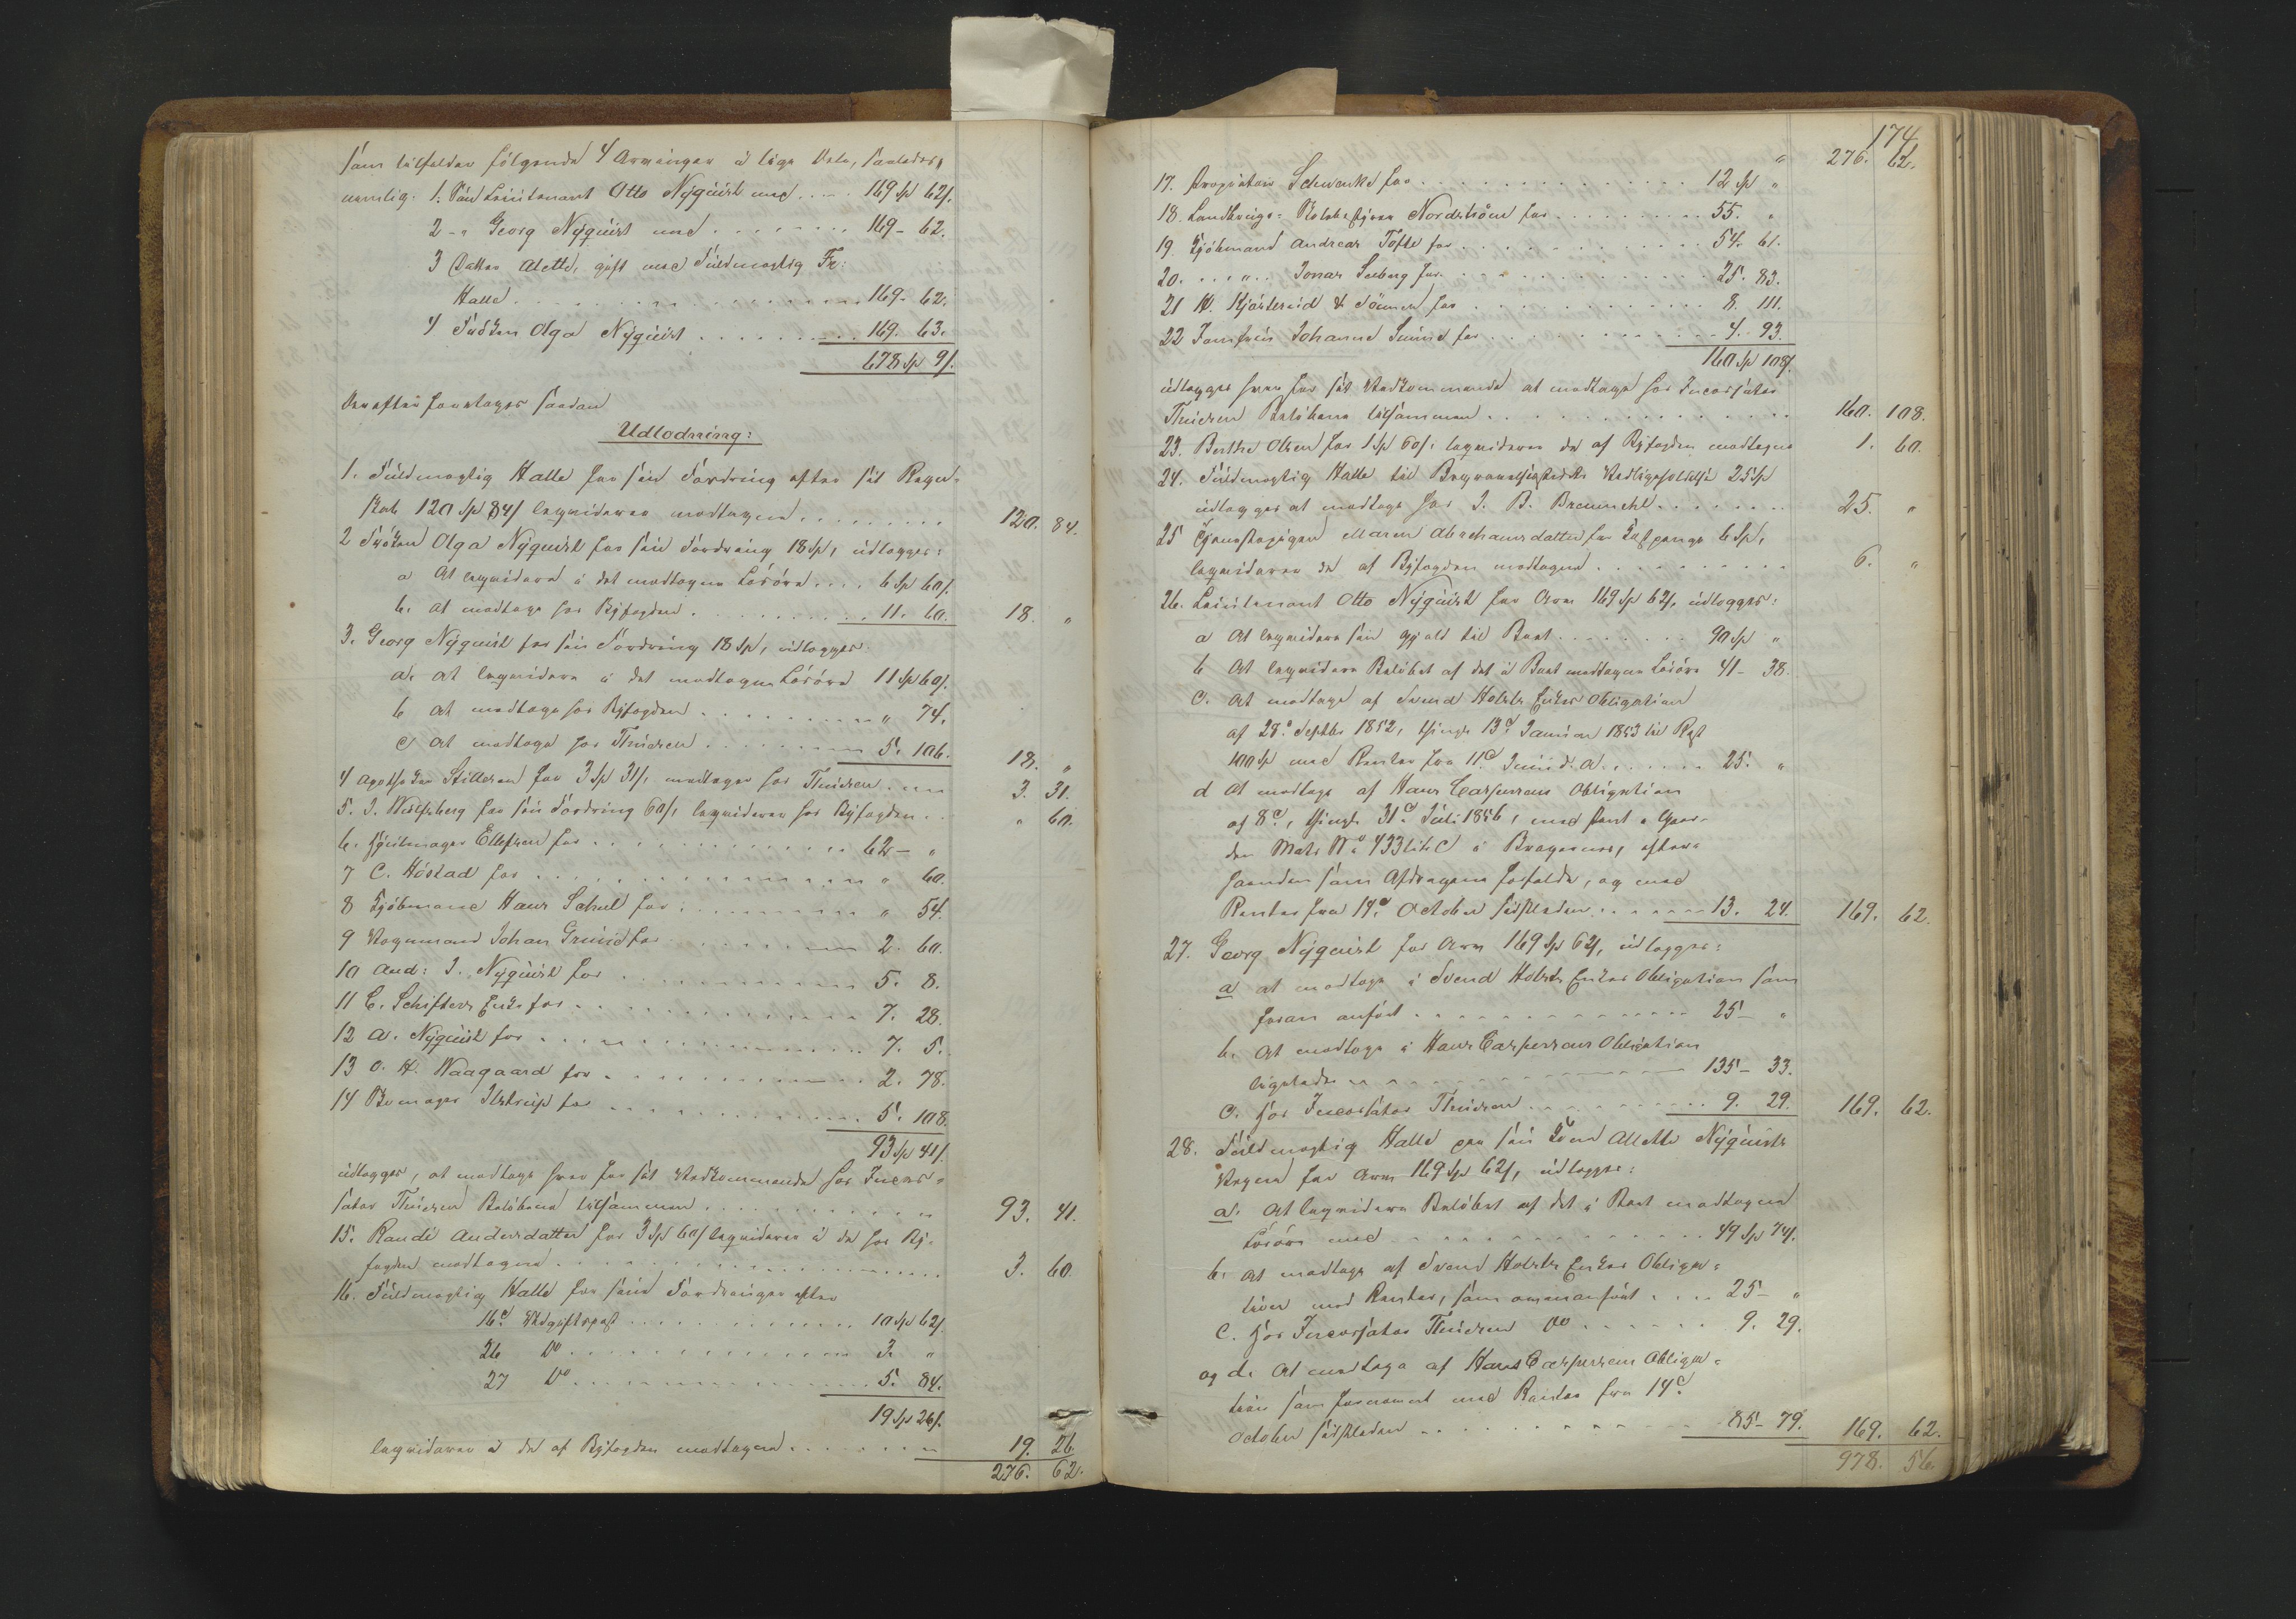 som tilfalder følgende 4 Arvinger i lige Dele, saaledes,
nemlig: 1. Søn Lieutenant Otto Nÿquist med .... 169 Sp 62 s.
2 - " Georg Nÿquist med ....... 169 - 62.
3 Datter Alette, gift med Fuldmægtig Fr:
Halle ............ 169 - 62.
4 Frøken Olga Nÿquist ......... 169. 63.
678 Sp 9 s.
Derefter foretages saadan
Udlodning:
1. Fuldmægtig Halle for sin Fordring efter sit Regn-
skab 120 Sp 84 s liqviderer modtagne ........ 120. 84.
2 Frøken Olga Nÿquist for sin Fordring 18 Sp, udlægges:
a At liqvidere i det modtagne Løsøre .... 6 Sp 60 s.
b. at modtage hos Byfogden ......... 11. 60. 18. "
3. Georg Nÿquist for sin Fordring 18 Sp, udlægges
a. at liqvidere i det modtagne Løsøre 11 Sp 60 s.
b at modtage hos Byfogden ......... " 74.
c at modtage hos Thuesen ....... 5. 106. 18. "
4 Apotheker Stillesen for 3 Sp 31 s. modtager hos Thuesen ... 3. 31.
5. J. Wulfsberg for sin Fordring 60 s, liqviderer hos Byfogden .. " 60.
6. Hjulmager Ellefsen for ............ 62 - "
7 C. Høstad for ............ " 60.
8 Kjøbmand Hans Schul for ......... " 54.
9 Vognmand Johan Gruud for ......... 2. 60.
10 And: J. Nÿquist for .......... 5. 8.
11 C. Schifters Enke for ............ 7. 28.
12 A. Nÿquist for ............ 7. 5.
13 O. H. Waagaard for .......... 2. 78.
14 Ilstrup for .......... 5. 108.
93 Sp 41 s.
udlægges, at modtage hver for sit Vedkommende hos Incas-
sator Thuesen Beløbene tilsammen ............ 93. 41.
15. Randi Andersdatter for 3 Sp 60 s liqviderer i de hos By-
fogden modtagne ............ 3. 60
16. Fuldmægtig Halle for sine Fordringer efter
16de Udgiftspost ............ 10 Sp 62 s.
26 Do ............ 3. "
27 Do ............ 5. 84.
19 Sp 26 s.
liqviderer i de af Byfogden modtagne ........ 19. 26.
276. 62.
174
" 276. 62.
17. Proprietair Schwencke for ............ 12 Sp "
18. Landbrugs-Skolebestyrer Nordstrøm for ......... 55. "
19. Kjøbmand Andreas Tofte for ............ 54. 61.
20. ... " .. Jonas Seeberg for ............ 25. 83.
21 H. Kjøsterud & Sønner for ............ 8. 111.
22 Jomfru Johanne for ............ 4. 93.
160 Sp 108 s.
udlægges hver for sit Vedkommende at modtage hos Incassator
Thuesen Beløbene tilsammen ............ 160. 108.
23. Berthe Olsen for 1 Sp 60 s. liqviderer de af Byfogden modtagne 1. 60.
24. Fuldmægtig Halle til Begravelsesstedets Vedligeholdelse 25 Sp
udlægges at modtage hos J. B. ....... 25. "
25 Tjenestepigen Maren Abrahamsdatter for Kostpenge 6 Sp,
liqviderer de af Byfogden modtagne ......... 6. "
26. Lieutenant Otto Nÿquist for Arv 169 Sp 62 s, udlægges:
a At liqvidere sin Gjæld til Boet ........ 90 Sp "
b At liqvidere Beløbet af det i Boet modtagne Løsøre 41 - 38.
c. At modtage af Svend Holsts Enkes Obligation
af 28de Septbr 1852, thingl. 13de Januar 1853 til Rest
100 Sp med Renter fra 11te Juni d. A. ...... 25. "
d At modtage af Hans Caspersens Obligation
af 8de, thingl. 31de Juli 1856, med Pant i Gaar-
den Matr No 433 litr C i Bragernes, efter-
haanden som Afdragene forfalde, og med
Renter fra 14de October sidstleden ...... 13. 24. 169. 62.
27. Georg Nÿquist for Arv 169 Sp 62 s, udlægges:
a at modtage i Svend Holsts Enkes Obligation som
foran anført ............ 25 - "
b. At modtage i Hans Caspersens Obligation
ligeledes ............ 135 - 33.
c. hos Incassator Thuesen .......... 9. 29. 169. 62.
28. Fuldmægtig Halle paa sin Kone Alette Nÿquists
Vegne for Arv 169 Sp 62 s, udlægges:
a. At liqvidere Beløbet af det i Boet modtagne
Løsøre med ............ 49 Sp 74 s.
b. At modtage af Svend Holsts Enkes Obliga-
tion med Renter, som ovenanført .... 25 - "
c. hos Incassator Thuesen Do ...... 9. 29.
og d. At modtage af Hans Caspersens Obliga-
tion som fornævnt med Renter fra 14de
October sidstleden ............ 85 - 79. 169. 62.
978. 56.